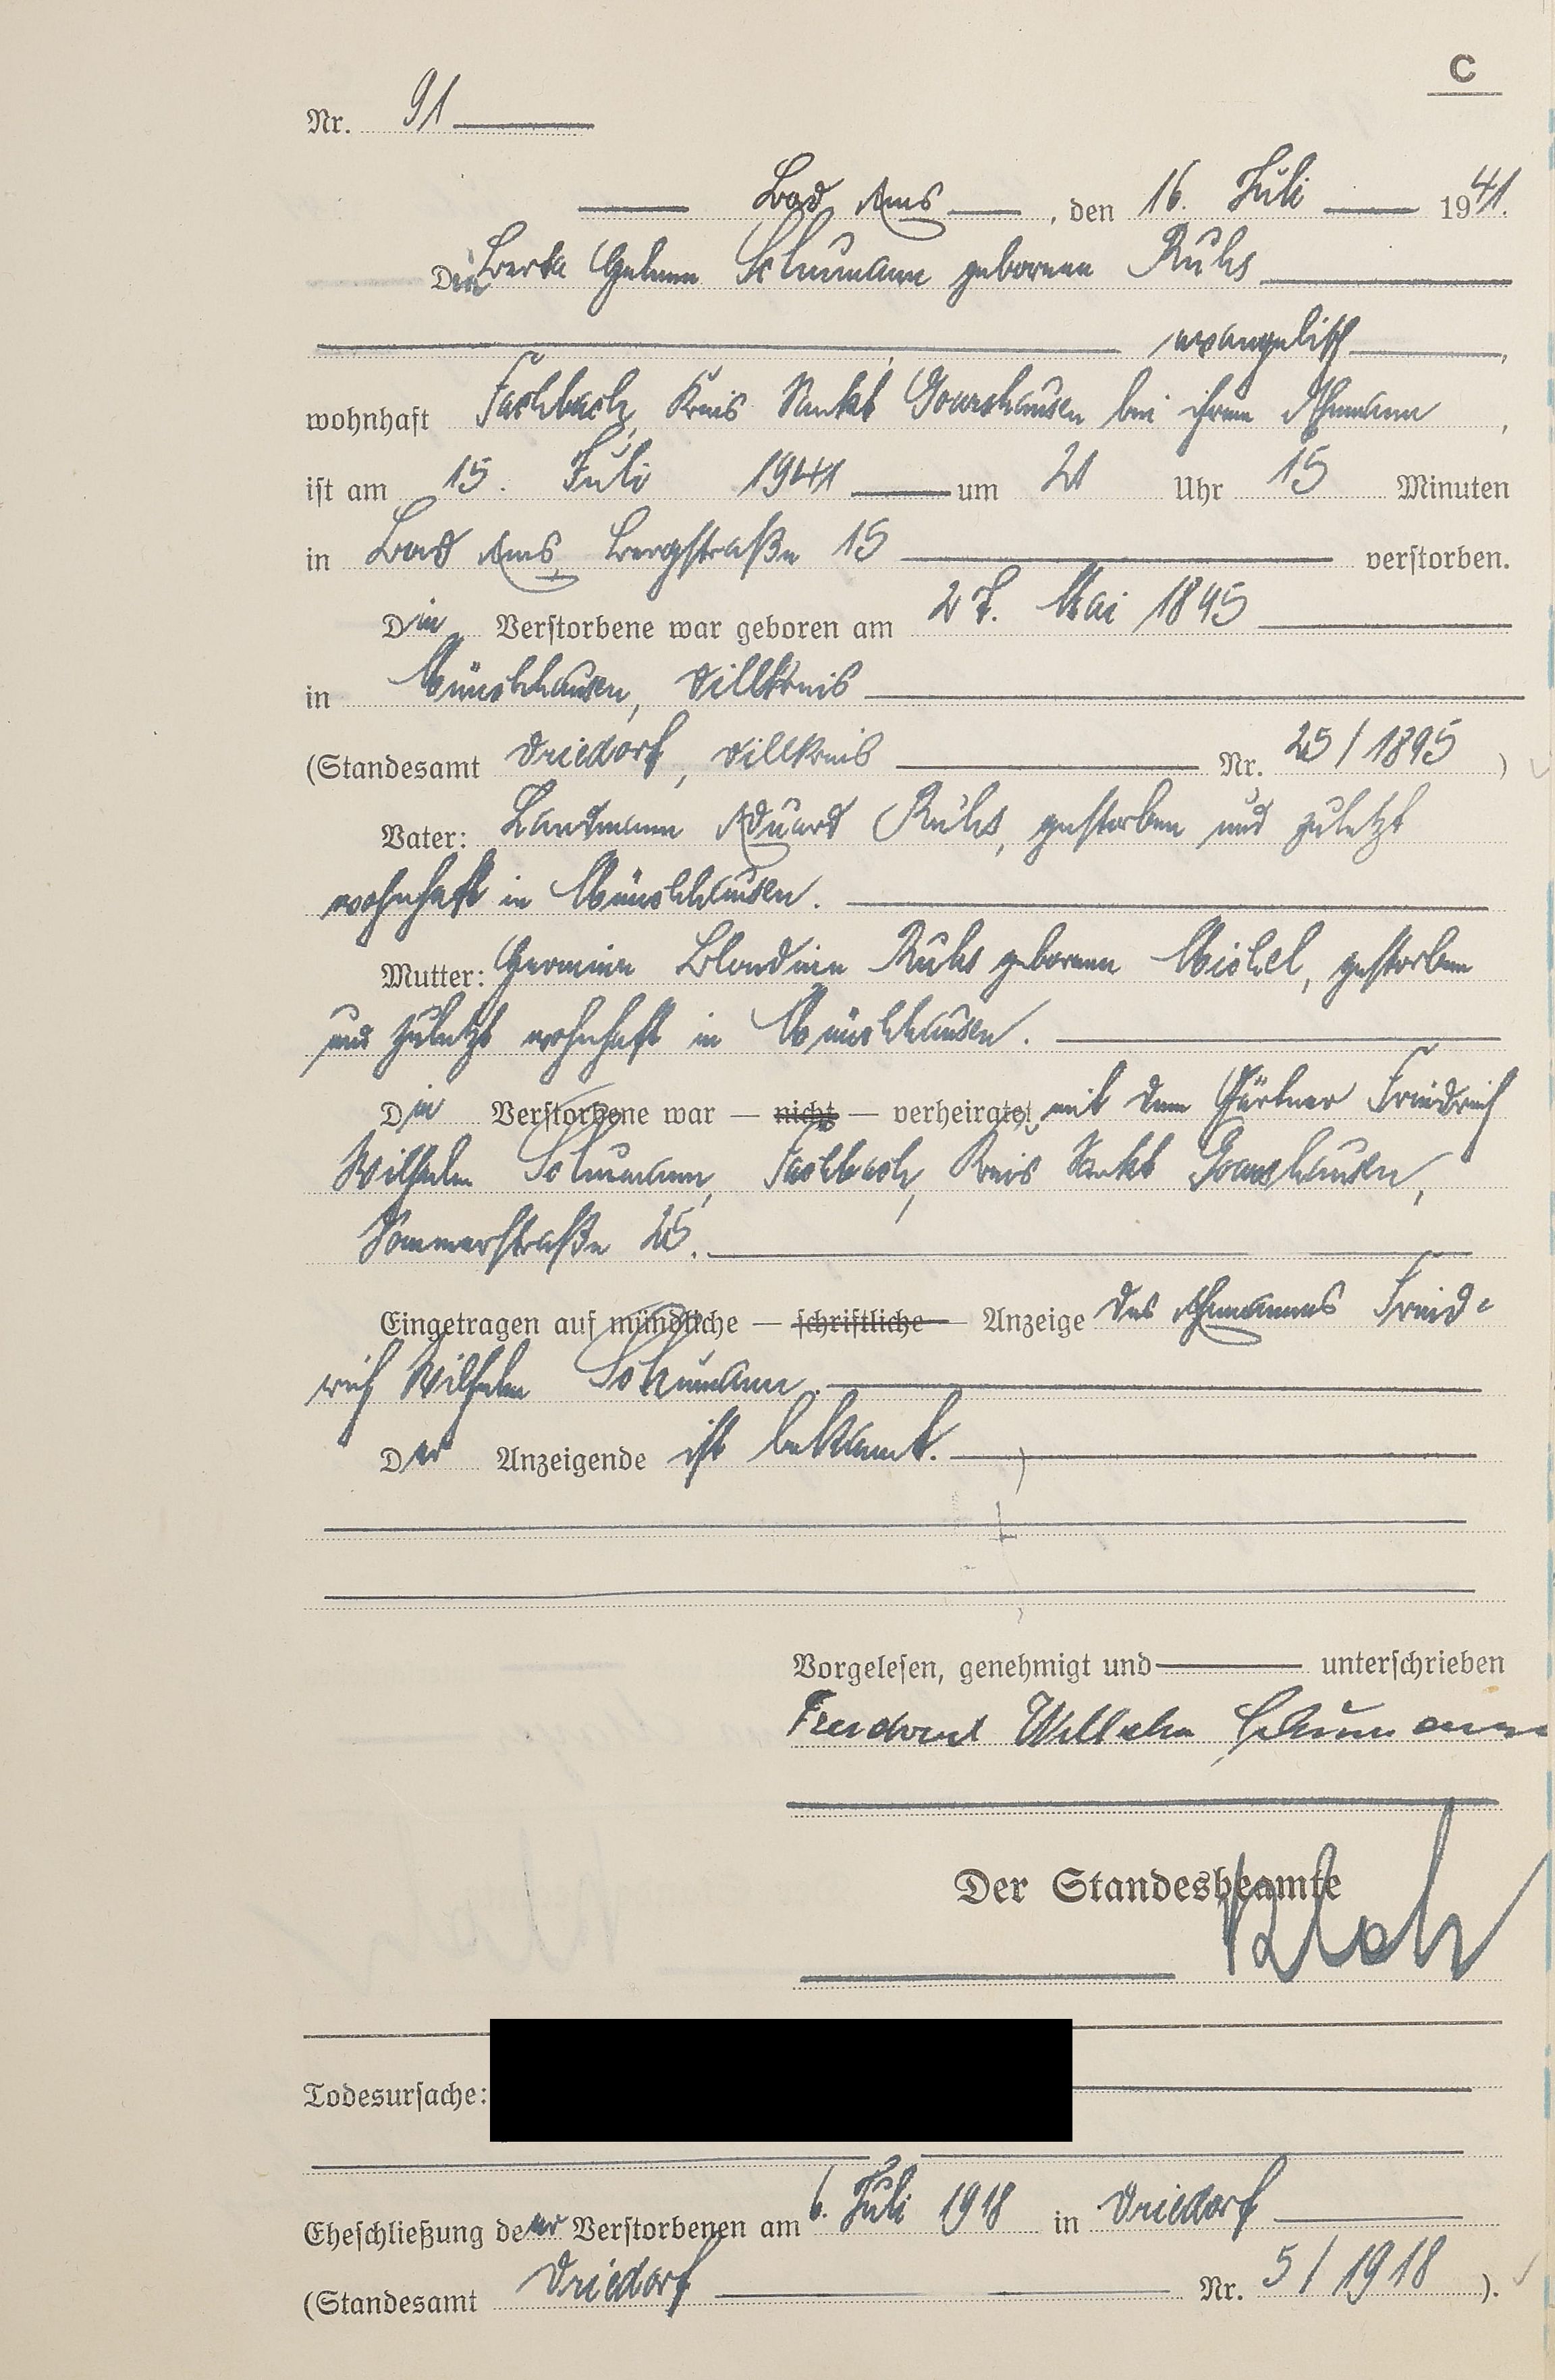 C
Nr. 91
Bad Ems, den 16. Juli 1941.
Die Berta Helene Schumann geborene Ruhs
evangelisch,
wohnhaft Fachbach, Kreis Sankt Goarshausen bei ihrem Ehemann,
ist am 15. Juli 1941 um 21 Uhr 15 Minuten
in Bad Ems, Bergstraße 15 verstorben.
Die Verstorbene war geboren am 27. Mai 1895
in Münchhausen, Dillkreis
(Standesamt Driedorf, Dillkreis Nr. 25/1895)
Vater: Landmann Eduard Ruhs, gestorben und zuletzt
wohnhaft in Münchhausen.
Mutter: Hermine Blondine Ruhs geborene Michel, gestorben
und zuletzt wohnhaft in Münchhausen.
Die Verstorbene war — nicht — verheiratet mit dem Gärtner Friedrich
Wilhelm Schumann, Fachbach, Kreis Sankt Goarshausen,
Sommerstraße 25.
Eingetragen auf mündliche — schriftliche — Anzeige des Ehemannes Fried=
rich Wilhelm Schumann.
Der Anzeigende ist bekannt.
Vorgelesen, genehmigt und unterschrieben
Friedrich Wilhelm Schumann
Der Standesbeamte
Todesursache:
Eheschließung der Verstorbenen am 6. Juli 1918 in Driedorf
(Standesamt Driedorf Nr. 5/1918).